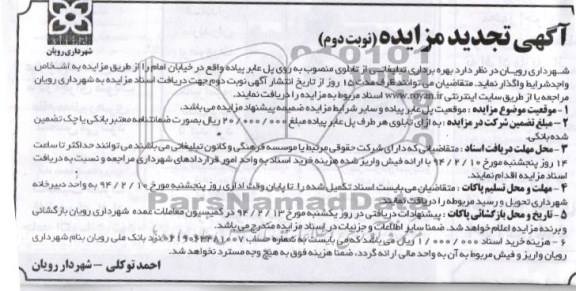 شهرداری رویان
آگهی تجدید مزایده (نوبت دوم)
شهرداری رویان در نظر دارد بهره برداری تبلیغاتی از تابلوی منصوب به روی پل عابر پیاده واقع در خیابان امام را از طریق مزایده به اشخاص
واجد شرایط واگذار نماید. متقاضیان می توانند ظرف مدت ۱۵ روز از تاریخ انتشار آگهی نوبت دوم جهت دریافت اسناد مزایده به شهرداری رویان
مراجعه یا از طریق سایت اینترنتی www.royan.ir اسناد مربوط به مزایده را دریافت نمایند.
۱ - موقعیت موضوع مزایده : موقعیت پل عابر پیاده و سایر شرایط مزایده ضمیمه پیشنهاد مزایده می باشد.
۲ - مبلغ تضمین شرکت در مزایده : به ازای تابلوی هر طرف پل عابر پیاده مبلغ ۲۰/۰۰۰/۰۰۰ ریال بصورت ضمانتنامه معتبر بانکی یا چک تضمین
شده بانکی.
۳ - محل مهلت دریافت اسناد : متقاضیانی که دارای شرکت حقوقی مرتبط یا موسسه فرهنگی و کانون تبلیغاتی می باشند می توانند حداکثر تا ساعت
۱۴ روز پنجشنبه مورخ ۹۴/۲/۱۰ با ارائه فیش واریز شده هزینه خرید اسناد به واحد امور قراردادهای شهرداری مراجعه و نسبت به دریافت
اسناد مزایده اقدام نمایند.
۴ - مهلت و محل تسلیم پاکات : متقاضیان می بایست اسناد تکمیل شده را تا پایان وقت اداری روز پنجشنبه مورخ ۹۴/۲/۱۰ به واحد دبیرخانه
شهرداری تحویل و رسید مربوطه را دریافت نمایند.
۵ - تاریخ و محل بازگشائی پاکات : پیشنهادات دریافتی در روز یکشنبه مورخ ۹۴/۲/۱۳ در کمیسیون معاملات عمده شهرداری رویان بازگشائی
و برنده مزایده اعلام خواهد شد. ضمنا سایر اطلاعات و جزئیات در اسناد مزایده مندرج می باشد.
۶ - هزینه خرید اسناد ۱/۰۰۰/۰۰۰ ریال می باشد که می بایست به شماره حساب نزد بانک ملی رویان بنام شهرداری
رویان واریز و فیش مربوط به آن به واحد مالی ارائه گردد، ضمنا هزینه فوق به هیچ وجه مسترد نخواهد شد.
احمد توکلی - شهردار رویان
ParsNamadData